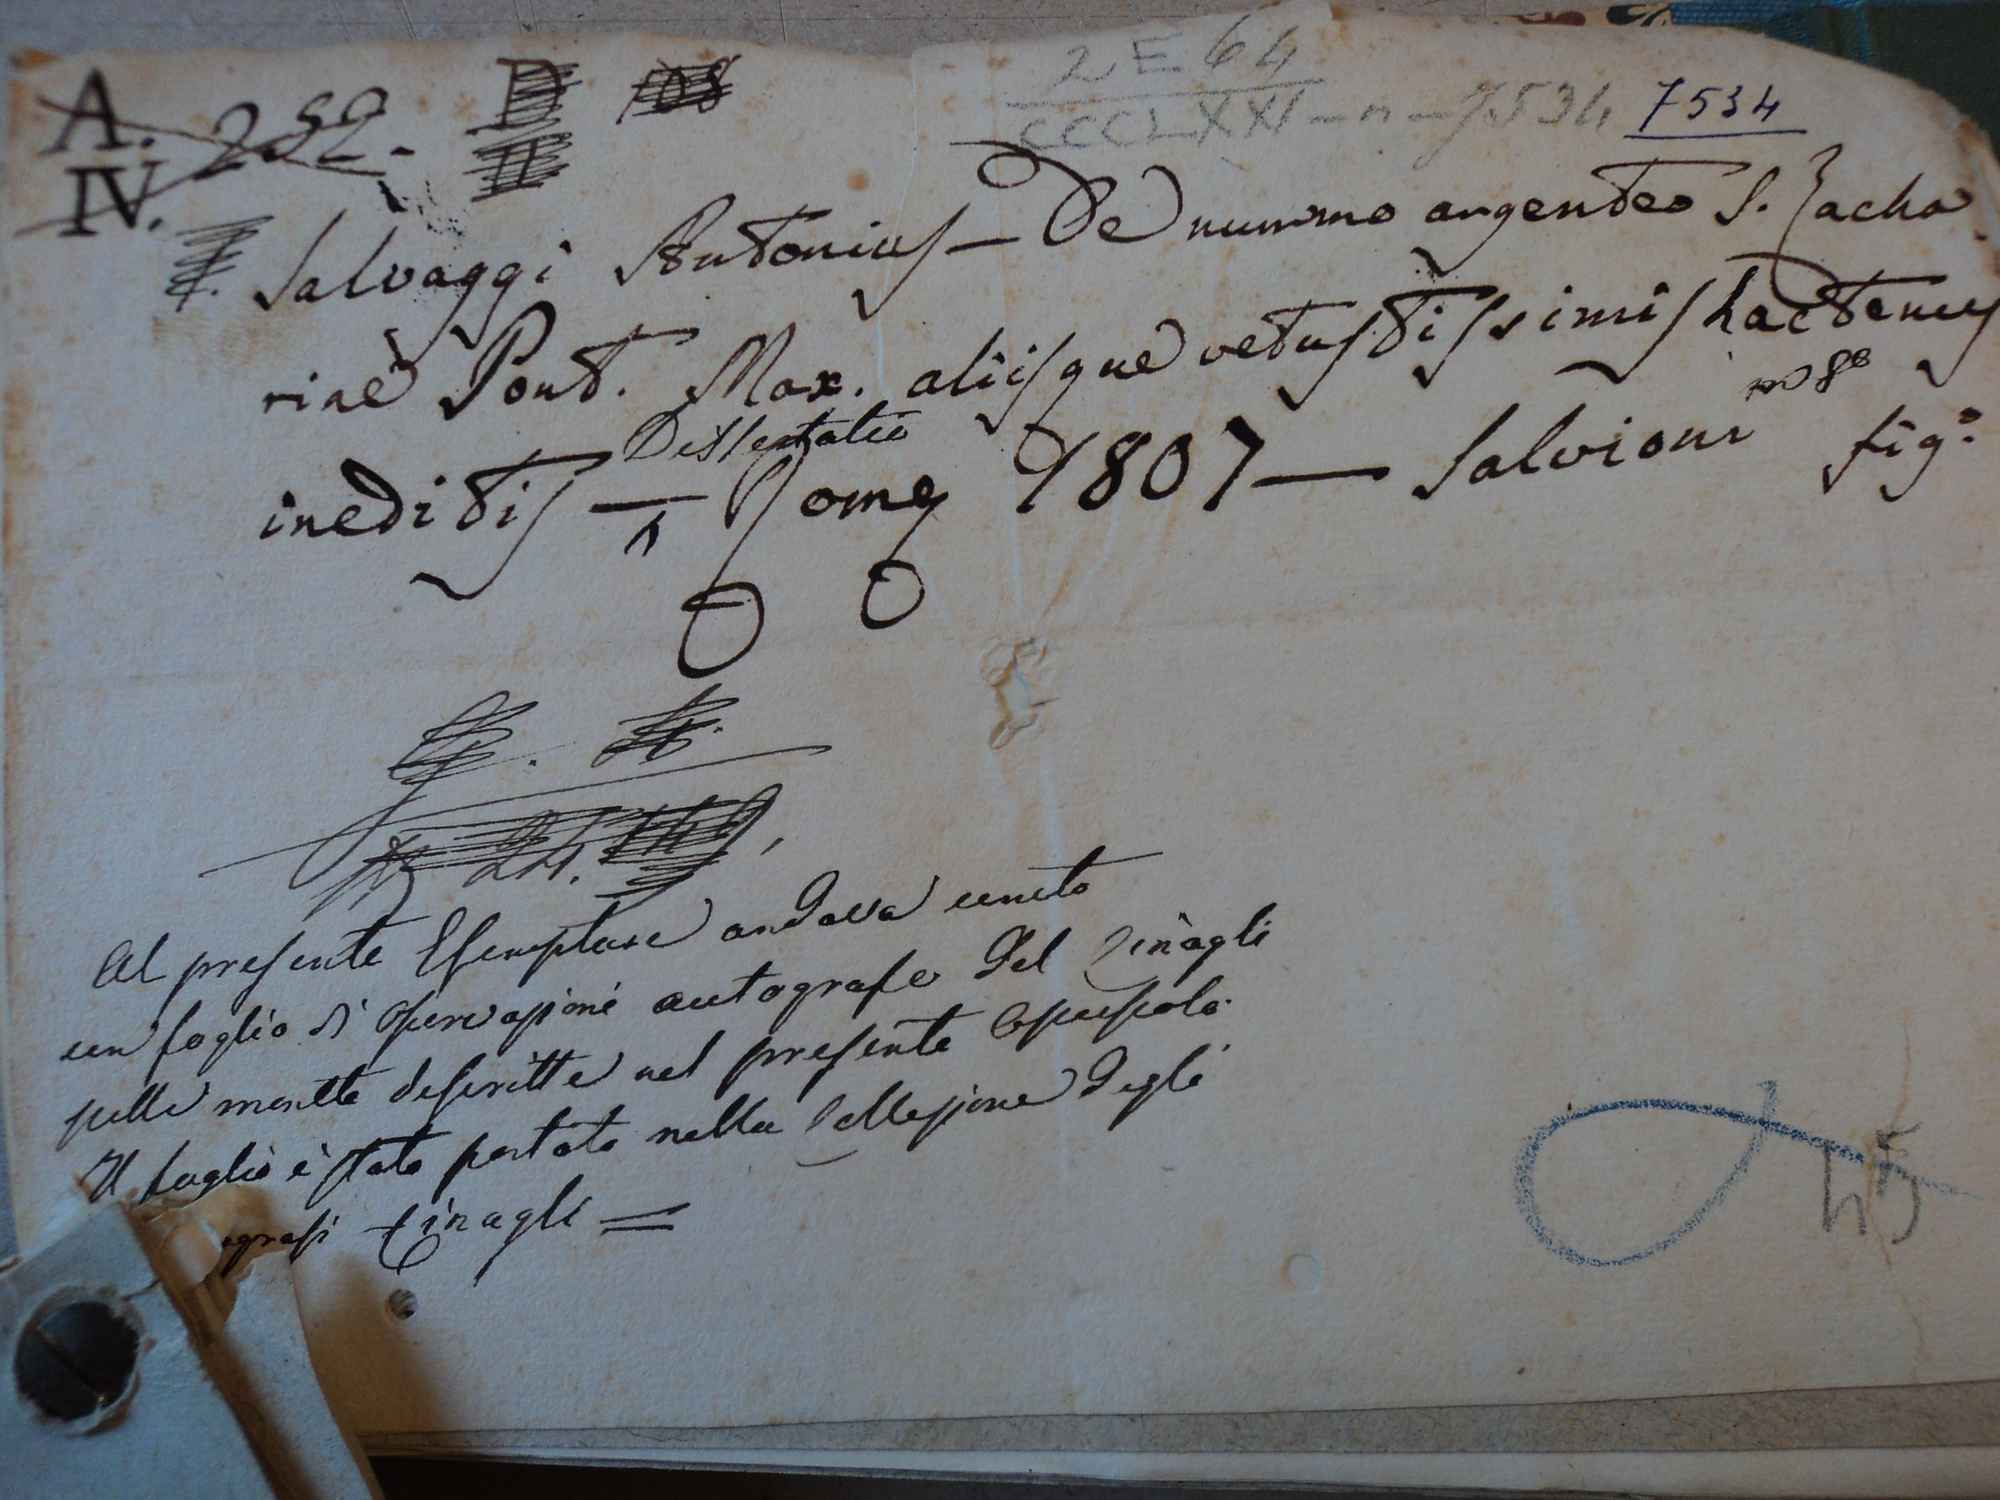 A. 252. D 108
IV. II
2 E 64
CCCLXXI - n - 7534 7534
Salvaggi Antonius — De nummo argenteo S. Zacha
riae Pont. Max. aliisque vetustissimis hactenus
ineditis — Romę 1807 — Salvioni in 8° fig.°
Dissertatio
Al presente Esemplare andava unito
un foglio di osservazioni autografo del Zinagli
sulle monete descritte nel presente opuscolo.
Il foglio è stato portato nella Collezione degli
ografi Zinagli =